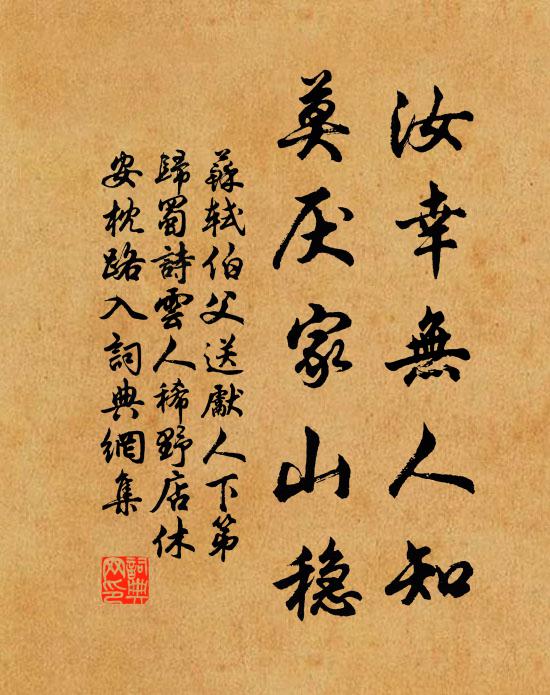 汝幸無人知
莫厌家山穏
蘇軾伯父送獻人下第
歸蜀詩雲人稀野店休
安枕路入詞典網集
詞典网印